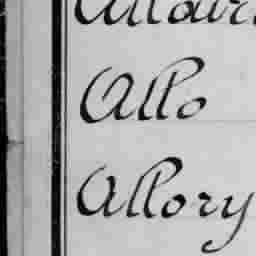 Allo
Allory